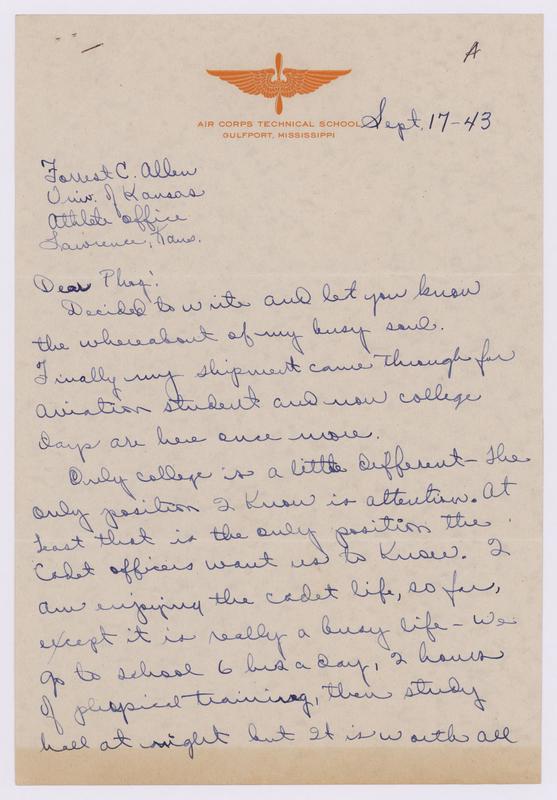 A
AIR CORPS TECHNICAL SCHOOL
GULFPORT, MISSISSIPPI
Sept. 17-43
Forrest C. Allen
Univ. of Kansas
Athlete office
Lawrence, Kans.
Dear Phog:
Decided to write and let you know
the whereabout of my busy soul.
Finally my shipment came through for
aviation student and now college
days are here once more.
Only college is a little different - The
only position I know is attention. At
least that is the only position the
Cadet officers want us to know. I
am enjoying the cadet life, so far,
except it is really a busy life - we
go to school 6 hrs a day, 2 hours
of physical training, then study
hall at night but it is worth all